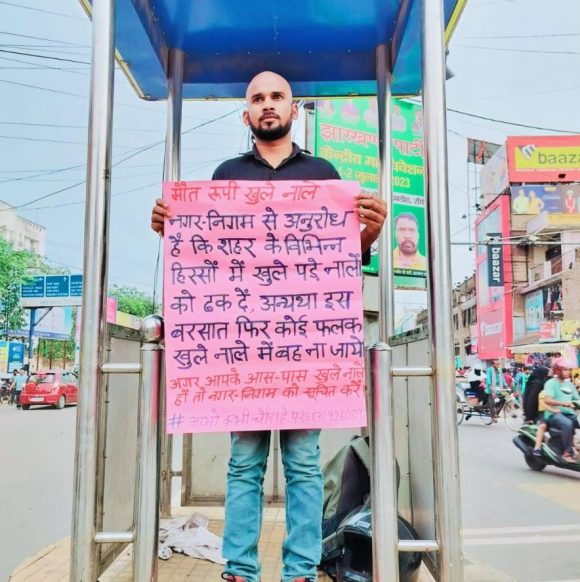 झारखण्ड पार्टी
2023
baazar
मौत रूपी खुले नाले
नगर-निगम से अनुरोध
है कि शहर के विभिन्न
हिस्सों में खुले पड़े नालों
को ढक दें, अन्यथा इस
बरसात फिर कोई फलक
खुले नाले में बह ना जाये
अगर आपके आस-पास खुले नाले
हों तो नगर-निगम को सूचित करें
# आओ कभी चौराहे पर:
baazar